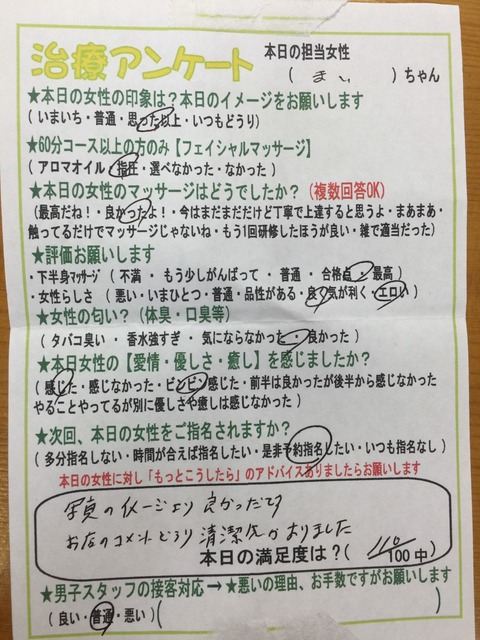 治療アンケート
本日の担当女性
( まい )ちゃん
★本日の女性の印象は？本日のイメージをお願いします
( いまいち・普通・思った以上・いつもどうり)
★60分コース以上の方のみ【フェイシャルマッサージ】
( アロマオイル・指圧・選べなかった・なかった )
★本日の女性のマッサージはどうでしたか？(複数回答OK)
(最高だね！・良かったよ！・今はまだまだだけど丁寧で上達すると思うよ・まあまあ・
触ってるだけでマッサージじゃないね・もう1回研修したほうが良い・雑で適当だった)
★評価お願いします
・下半身ﾏｯｻｰｼﾞ ( 不満 ・ もう少しがんばって ・ 普通 ・ 合格点 ・ 最高 )
・女性らしさ ( 悪い・いまひとつ・普通・品性がある・良く気が利く・エロい )
★女性の匂い？ (体臭・口臭等)
( タバコ臭い ・ 香水強すぎ ・ 気にならなかった ・ 良かった )
★本日女性の【愛情・優しさ・癒し】を感じましたか？
( 感じた・感じなかった・ビンビン感じた・前半は良かったが後半から感じなかった
やることやってるが別に優しさや癒しは感じなかった )
★次回、本日の女性をご指名されますか？
( 多分指名しない・時間が合えば指名したい・是非予約指名したい・いつも指名なし )
本日の女性に対し「もっとこうしたら」のアドバイスありましたらお願いします
写真のイメージより 良かったです
お店のコメントどうり 清潔感がありました
本日の満足度は？( 110/100中 )
★男子スタッフの接客対応 → ★悪いの理由、お手数ですがお願いします
( 良い・普通・悪い ) ( )